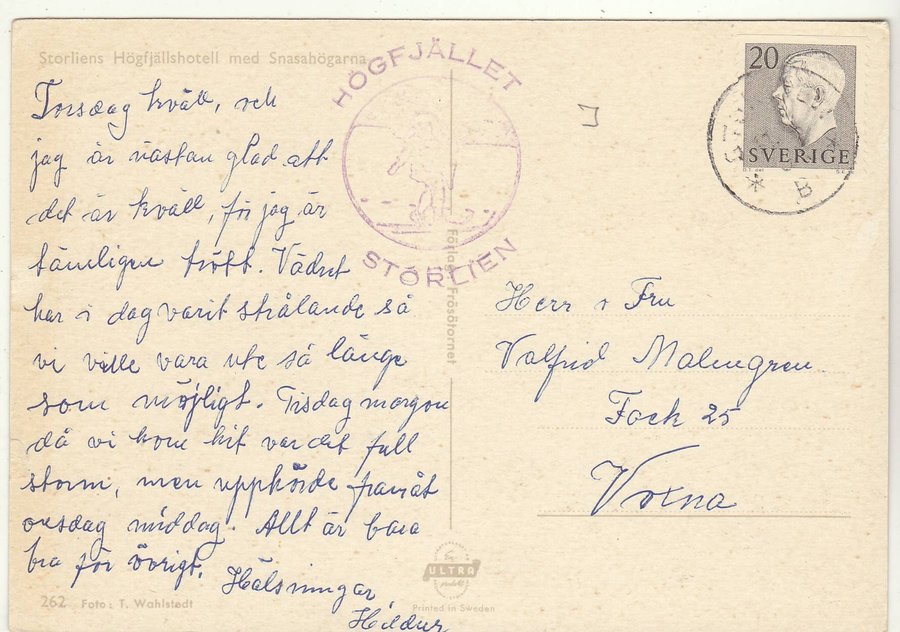 Storliens Högfjällshotell med Snasahögarna
HÖGFJÄLLET
STORLIEN
20
SVERIGE
B
Torsdag kväll, och
jag är nästan glad att
det är kväll, för jag är
tämligen trött. Vädret
har i dag varit strålande så
vi ville vara ute så länge
som möjligt. Tisdag morgon
då vi kom hit var det full
storm, men upphörde framåt
onsdag middag. Allt är bara
bra för övrigt.
Hälsningar
Hildur
Förlag: Frösötornet
Herr o Fru
Valfrid Malmgren
Fack 25
Voxna
ULTRA
262 Foto: T. Wahlstedt
Printed in Sweden